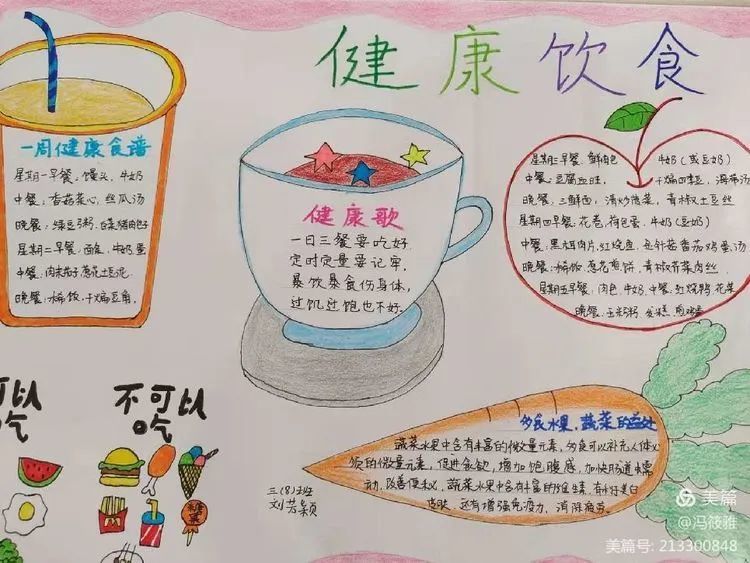 健康饮食
一周健康食谱
星期一早餐、馒头、牛奶
中餐、香菇菜心、丝瓜汤
晚餐、绿豆粥、白菜猪肉包子
星期二早餐、面包、牛奶、蛋
中餐、肉末茄子、葱花土豆泥、
晚餐、水稀饭、干煸豆角、
健康歌
一日三餐要吃好
定时定量要记牢
暴饮暴食伤身体,
过饥过饱也不好。
星期三早餐、鲜肉包 牛奶(或豆奶)
中餐、豆腐血旺、干煸四季豆、海带汤
晚餐、三鲜面、清炒菠菜、青椒土豆丝
星期四早餐、花卷、荷包蛋、牛奶(豆奶)
中餐、黑木耳肉片、红烧鱼、金针菇番茄鸡蛋汤
晚餐、稀饭、葱花煎饼、青椒芹菜肉丝、
星期五早餐、肉包、牛奶、中餐、红烧鸭、花菜
晚餐、玉米粥、发糕、
可以
吃
不可以
吃
糖果
三(8)班
刘芳颖
多食水果,蔬菜的益处
蔬菜水果中含有丰富的微量元素,多食可以补充人体必
须的微量元素,促进食欲,增加饱腹感,加快肠道蠕
动,改善便秘,蔬菜水果中含有丰富的维生素,有利于美白
皮肤,还有增强免疫力,消除疲劳。
美篇
@冯筱雅
美篇号: 213300848